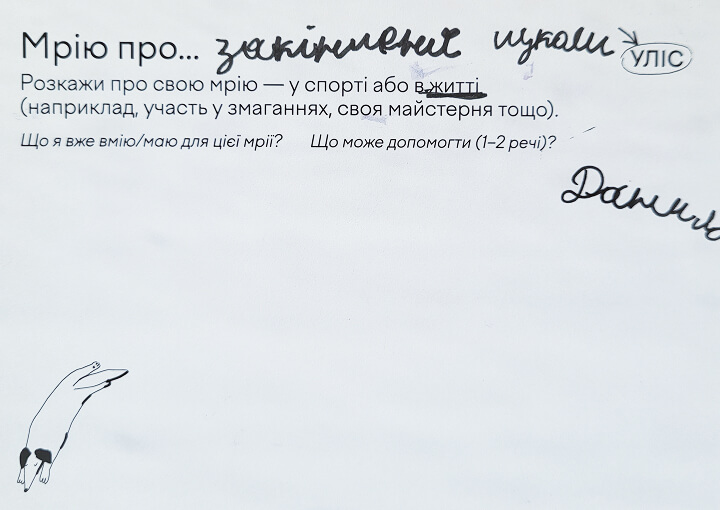 Мрію про... закінчення школи УЛІС
Розкажи про свою мрію — у спорті або в житті
(наприклад, участь у змаганнях, своя майстерня тощо).
Що я вже вмію/маю для цієї мрії? Що може допомогти (1–2 речі)?
Данило